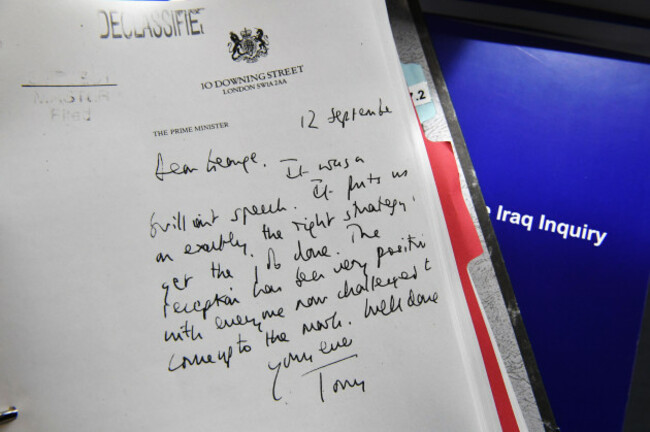 DECLASSIFIE
10 DOWNING STREET
LONDON SW1A 2AA
THE PRIME MINISTER
12 September
Dear George. It was a
brilliant speech. It puts us
on exactly the right strategy to
get the job done. The
reception has been very positive
with everyone now challenged to
come up to the mark. Well done
Yours ever
Tony
7.2
Iraq Inquiry
MASTER
Filed